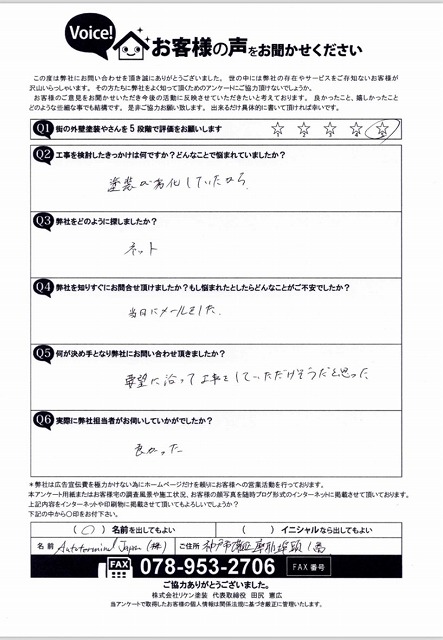 Voice!
お客様の声をお聞かせください
この度は弊社にお問い合わせを頂き誠にありがとうございました。世の中には弊社の存在やサービスをご存知ないお客様が
沢山いらっしゃいます。その方たちに弊社をよく知って頂くためのアンケートにご協力頂けないでしょうか。
お客様のご意見をお聞かせいただき今後の活動に反映させていただきたいと考えております。良かったこと、嬉しかったこと
どのような些細な事でも結構です。是非ご協力お願い致します。出来るだけ具体的に書いて頂ければ幸いです。
Q1 街の外壁塗装やさんを5段階で評価をお願いします ☆ ☆ ☆ ☆ ☆
1 2 3 4 5
Q2 工事を検討したきっかけは何ですか？どんなことで悩まれていましたか？
塗装が劣化していたから
Q3 弊社をどのように探しましたか？
ネット
Q4 弊社を知りすぐにお問合せ頂けましたか？もし悩まれたとしたらどんなことがご不安でしたか？
当日にメールをした.
Q5 何が決め手となり弊社にお問い合わせ頂きましたか？
要望に沿って工事をしていただけそうだと思った
Q6 実際に弊社担当者がお伺いしていかがでしたか？
良かった
＊弊社は広告宣伝費を極力かけない為にホームページだけを頼りにお客様への営業活動を行っております。
本アンケート用紙またはお客様宅の調査風景や施工状況、お客様の顔写真を随時ブログ形式のインターネットに掲載させて頂いております。
上記内容をインターネットや印刷物に掲載させて頂いてもよろしいでしょうか？
下記の中から〇印をお付下さい。
（ 〇 ）名前を出してもよい （ ）イニシャルなら出してもよい
名前 Autoterminal Japan (株) ご住所 神戸市灘区摩耶埠頭1番
FAX 078-953-2706 FAX番号
ご協力ありがとうございました。
株式会社リケン塗装 代表取締役 田尻 憲広
当アンケートで取得したお客様の個人情報は関係法規に基づき厳正に管理いたします。